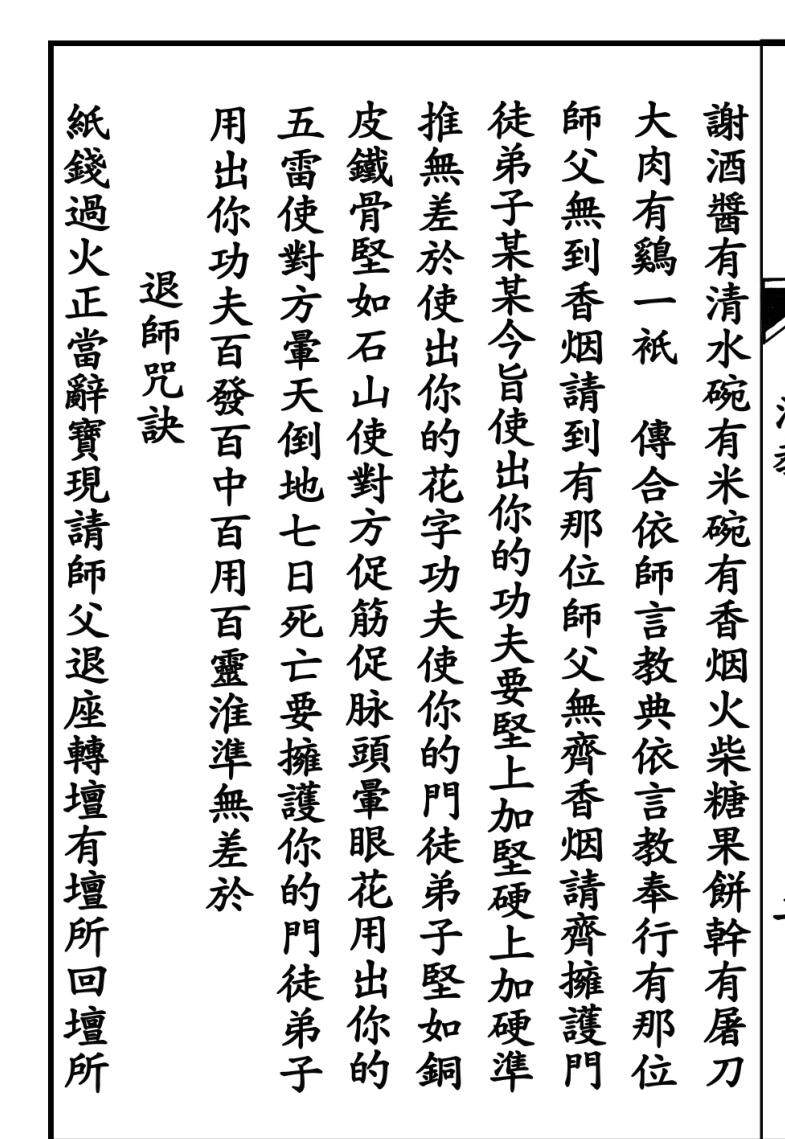 謝酒醬有清水碗有米碗有香烟火柴糖果餅幹有屠刀
大肉有鷄一衹　傳合依師言教典依言教奉行有那位
師父無到香烟請到有那位師父無齊香烟請齊擁護門
徒弟子某某今旨使出你的功夫要堅上加堅硬上加硬準
推無差於使出你的花字功夫使你的門徒弟子堅如銅
皮鐵骨堅如石山使對方促筋促脉頭暈眼花用出你的
五雷使對方暈天倒地七日死亡要擁護你的門徒弟子
用出你功夫百發百中百用百靈淮準無差於
退師咒訣
紙錢過火正當辭寶現請師父退座轉壇有壇所回壇所